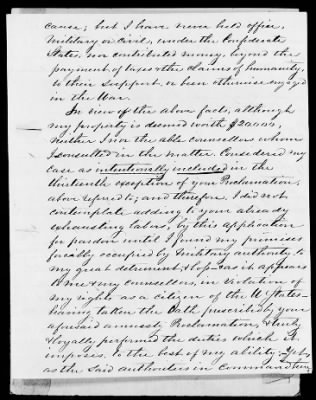 cause; but I have never held office,
Military or civil, under the Confederate
States, nor contributed money, beyond the
payment of taxes & the claims of humanity,
to their support, or been otherwise engaged
in the War.
In view of the above facts, although
my property is deemed worth $20,000,
neither I nor the able counsellors whom
I consulted in the matter, Considered my
case as intentionally included in the
thirteenth exception of your Proclamation,
above referred to; and therefore, I did not
contemplate adding to your already
exhausting labors, by this application
for pardon until I found my premises
forcibly occupied by Military authority to
my great detriment & loss—as it appears
to me & my counsellors, in violation of
my rights as a citizen of the U. States—
having taken the Oath prescribed by your
aforesaid amnesty Proclamation, & truly
& loyally performed the duties which it
imposes, to the best of my ability:
as the said authorities in Command